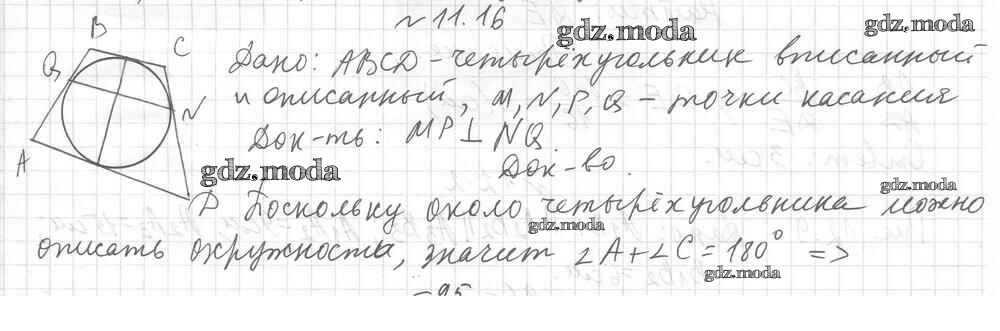 № 11.16
gdz.moda
gdz.moda
B
C
Q
N
A
D
Дано: ABCD - четырёхугольник вписанный
и описанный, M, N, P, Q - точки касания
Док-ть: MP⊥NQ
Док-во.
gdz.moda
gdz.moda
Поскольку около четырёхугольника можно
gdz.moda
описать окружность, значит ∠A+∠C=180° =>
gdz.moda